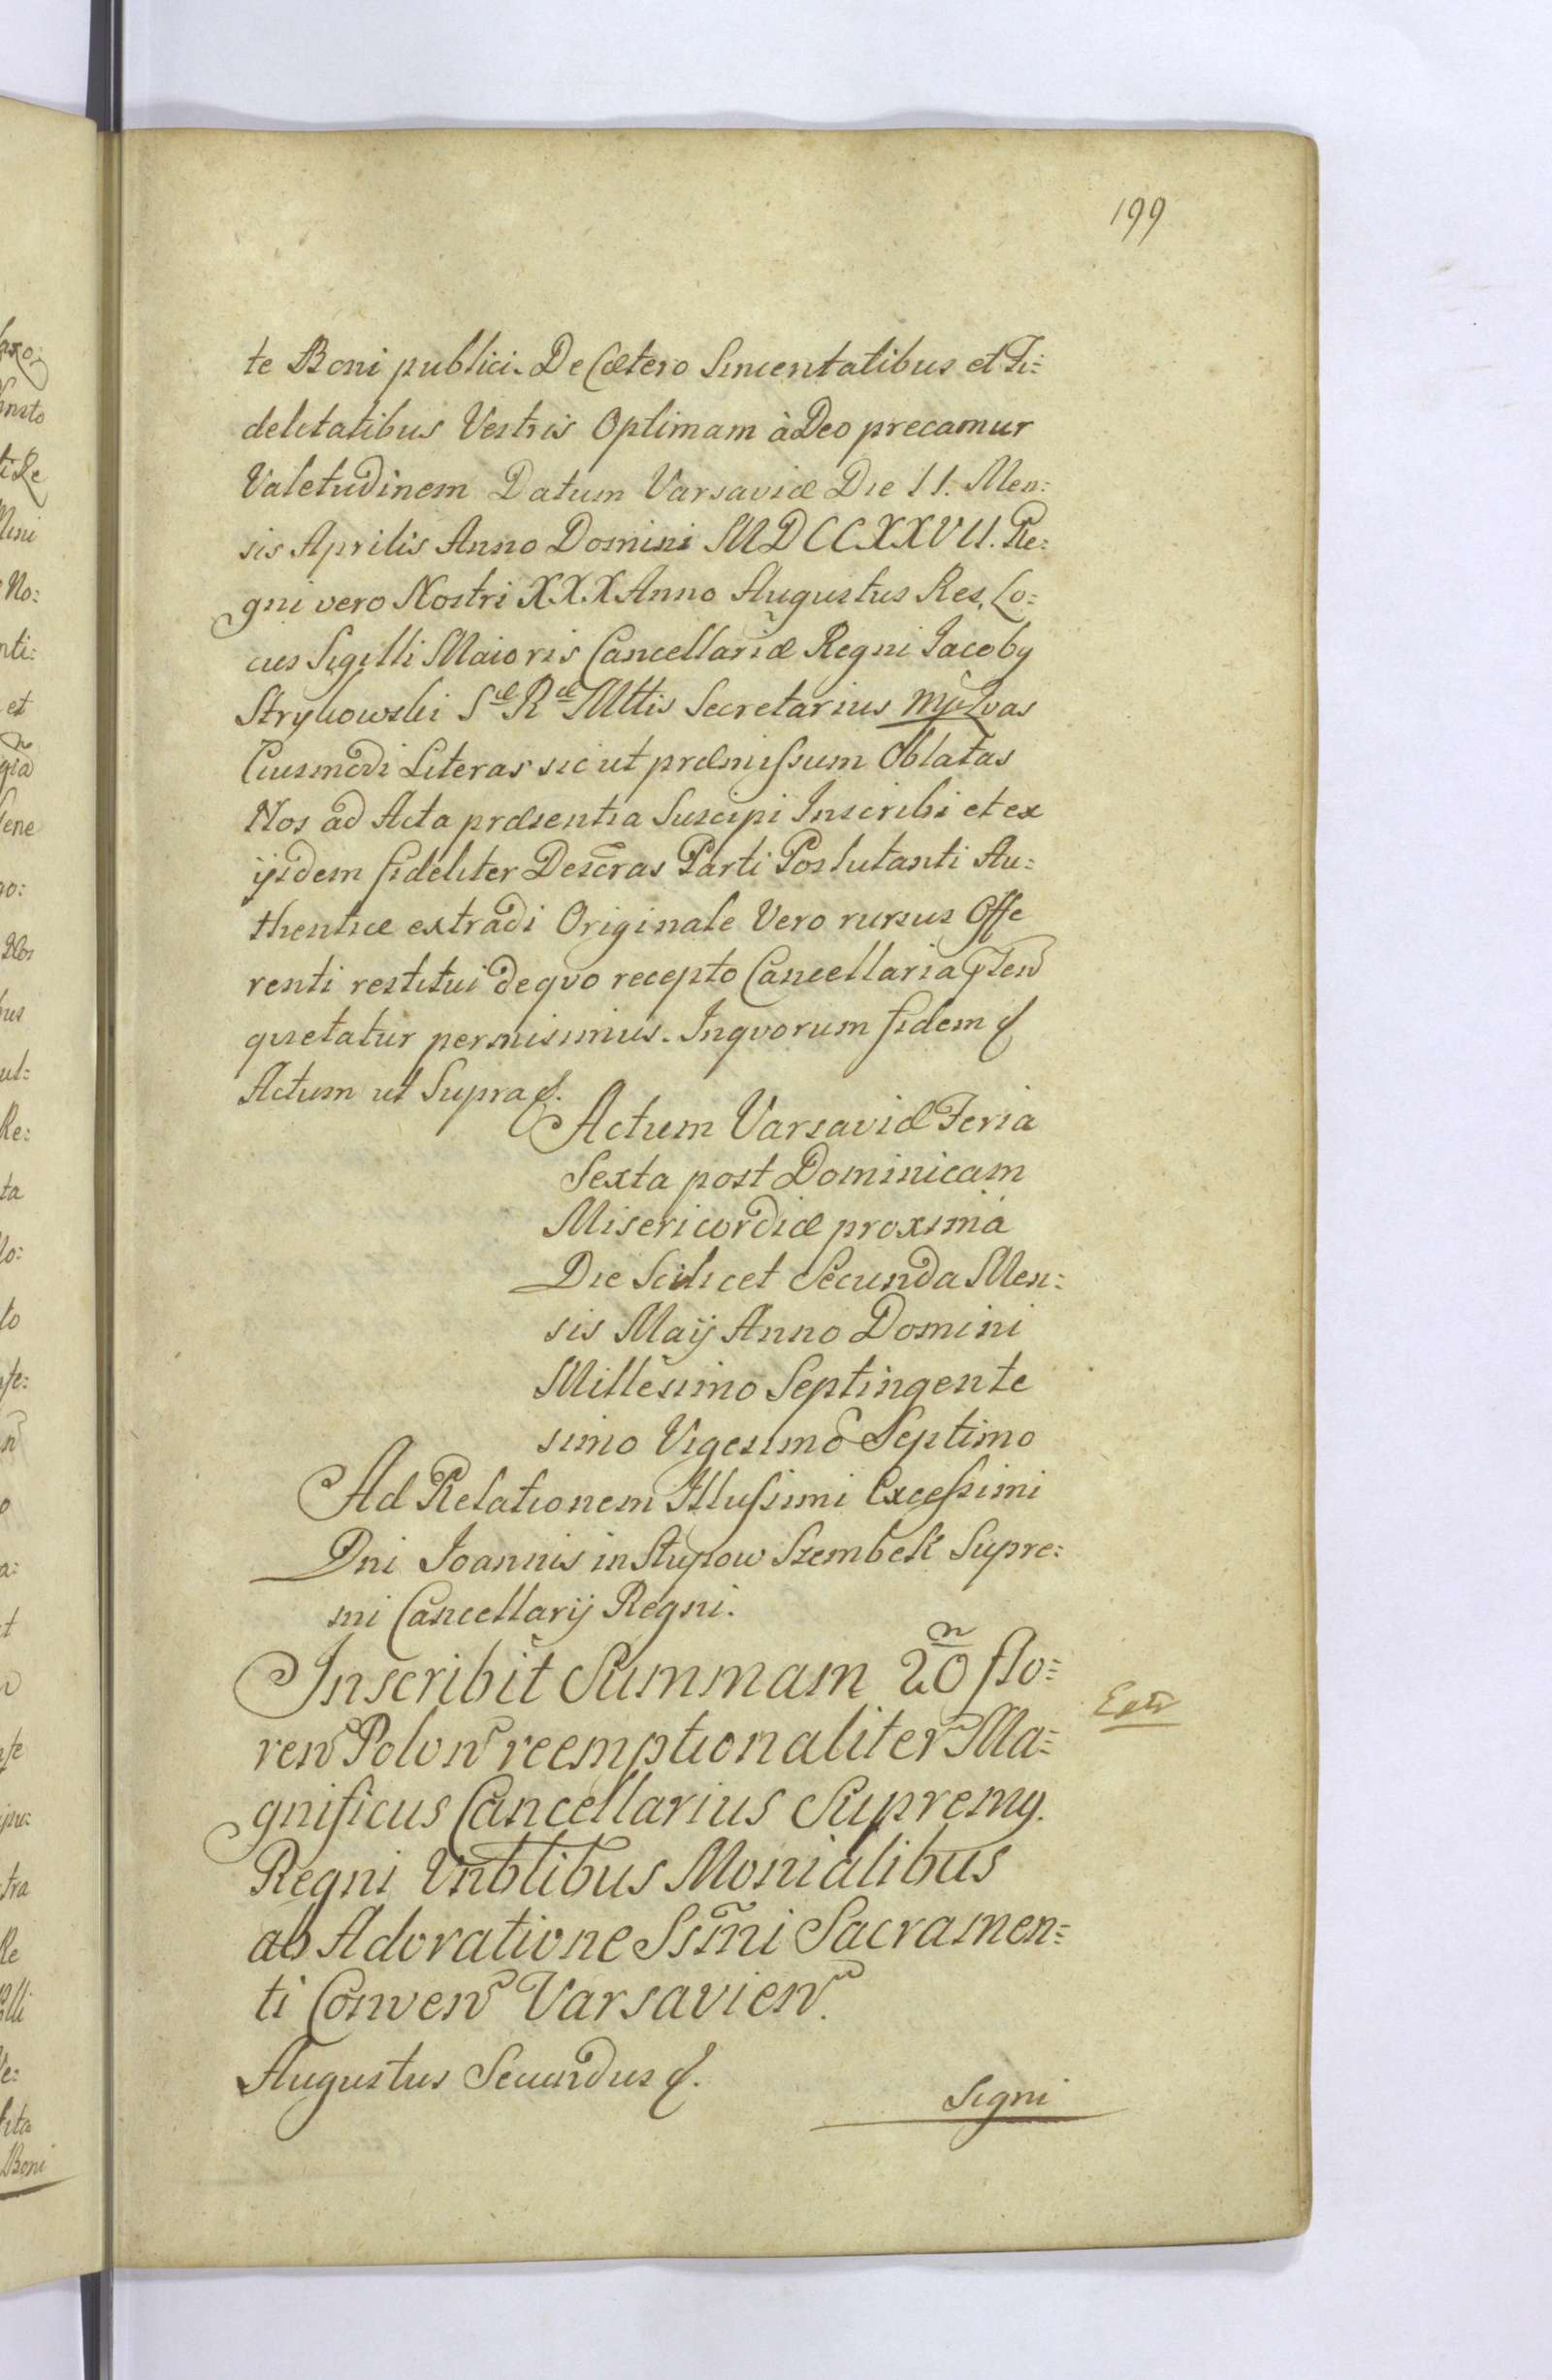 199
te Boni publici. De Cætero Sinceritatibus et Fi:
delitatibus Vestris Optimam à Deo precamur
Valetudinem Datum Varsaviæ Die 11. Men:
sis Aprilis Anno Domini MDCCXXVII. Re:
gni vero Nostri XXX Anno Augustus Rex, Lo:
cus Sigilli Maioris Cancellariæ Regni Jacoby
Strykowski Sæ Ræ Mttis Secretarius mp Qvas
Eiusmodi Literas sic ut præmissum Oblatas
Nos ad Acta præsentia Suscipi Inscribi et ex
ijsdem fideliter Descras Parti Postulanti Au:
thentice extradi Originale Vero rursus Offe
renti restitui de qvo recepto Cancellaria
quietatur permisimus. In qvorum fidem &
Actum ut Supra &.
Actum Varsaviæ Feria
Sexta post Dominicam
Misericordiæ proxima
Die Scilicet Secunda Men:
sis Maij Anno Domini
Millesimo Septingente
simo Vigesimo Septimo
Ad Relationem Illussimi Excessimi
Dni Joannis in Słupow Szembek Supre:
mi Cancellarij Regni.
Inscribit Summam 20 flo:
ren Polon reemptionaliter Ma:
gnificus Cancellarius Supremy.
Regni Vnblibus Monialibus
ab Adoratione Ssmi Sacramen:
ti Conven Varsavien.
Augustus Secundus &.
Signi